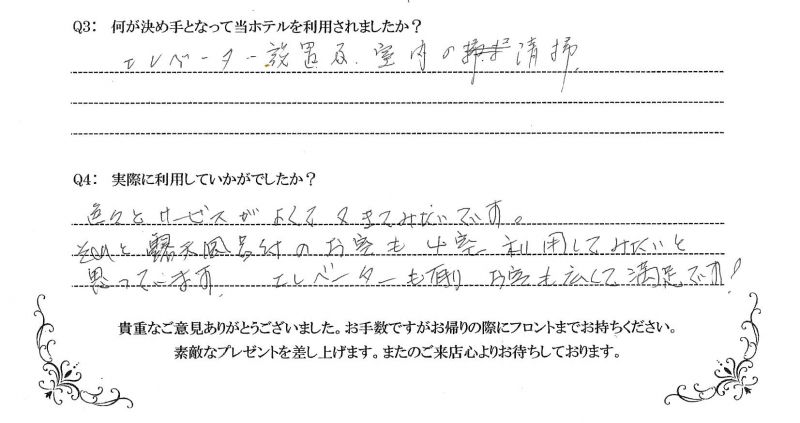 Q3： 何が決め手となって当ホテルを利用されましたか？
エレベーター設置及 室内の 清掃
Q4： 実際に利用していかがでしたか？
色々とサービスがよくて又きてみたいです。
それと露天風呂付のお室も 室 利用してみたいと
思っています。 エレベーターも有り お室も広くて満足です！
貴重なご意見ありがとうございました。お手数ですがお帰りの際にフロントまでお持ちください。
素敵なプレゼントを差し上げます。またのご来店心よりお待ちしております。